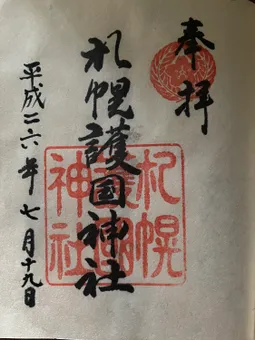 奉拝
札幌護国神社
平成二六年七月十九日
札幌
護国
神社